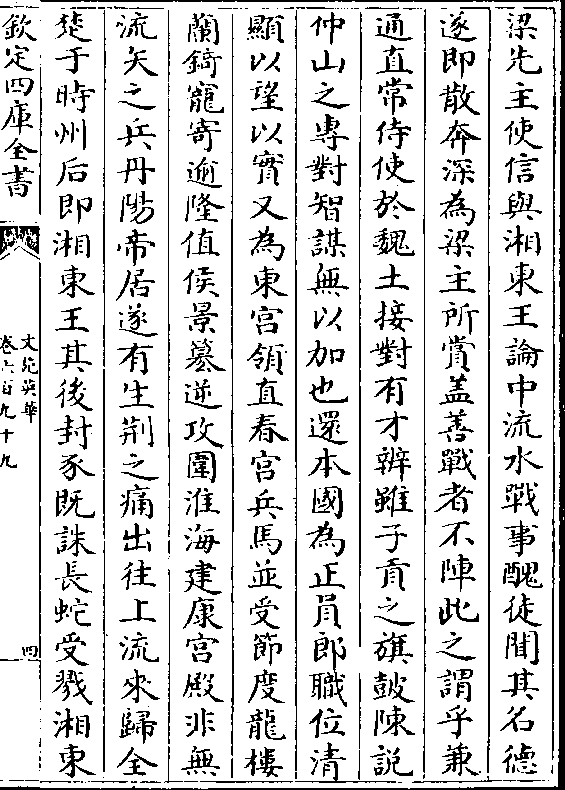 梁先主使信與湘東王論中流水戰事醜徒聞其名德
遂即散奔深為梁主所賞盖善戰者不陣此之謂乎兼
通直常侍使於魏土接對有才辨雖子貢之旗鼓陳説
仲山之專對智謀無以加也還本國為正員郎職位清
顯以望以實又為東宮領直春宮兵馬並受節度龍樓
蘭錡寵寄逾隆值侯景簒逆攻圍淮海建康宮殿非無
流矢之兵丹陽帝居遂有生荆之痛出往上流來歸全
楚于時州后即湘東王其後封豕既誅長蛇受戮湘東
欽定四庫全書
文苑英華
卷六百九十九
四